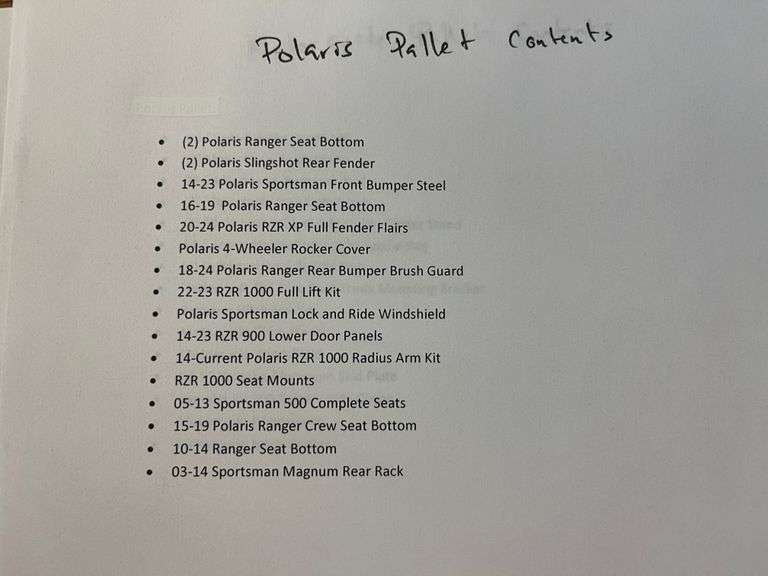 Polaris Pallet Contents
• (2) Polaris Ranger Seat Bottom
• (2) Polaris Slingshot Rear Fender
• 14-23 Polaris Sportsman Front Bumper Steel
• 16-19 Polaris Ranger Seat Bottom
• 20-24 Polaris RZR XP Full Fender Flairs
• Polaris 4-Wheeler Rocker Cover
• 18-24 Polaris Ranger Rear Bumper Brush Guard
• 22-23 RZR 1000 Full Lift Kit
• Polaris Sportsman Lock and Ride Windshield
• 14-23 RZR 900 Lower Door Panels
• 14-Current Polaris RZR 1000 Radius Arm Kit
• RZR 1000 Seat Mounts
• 05-13 Sportsman 500 Complete Seats
• 15-19 Polaris Ranger Crew Seat Bottom
• 10-14 Ranger Seat Bottom
• 03-14 Sportsman Magnum Rear Rack